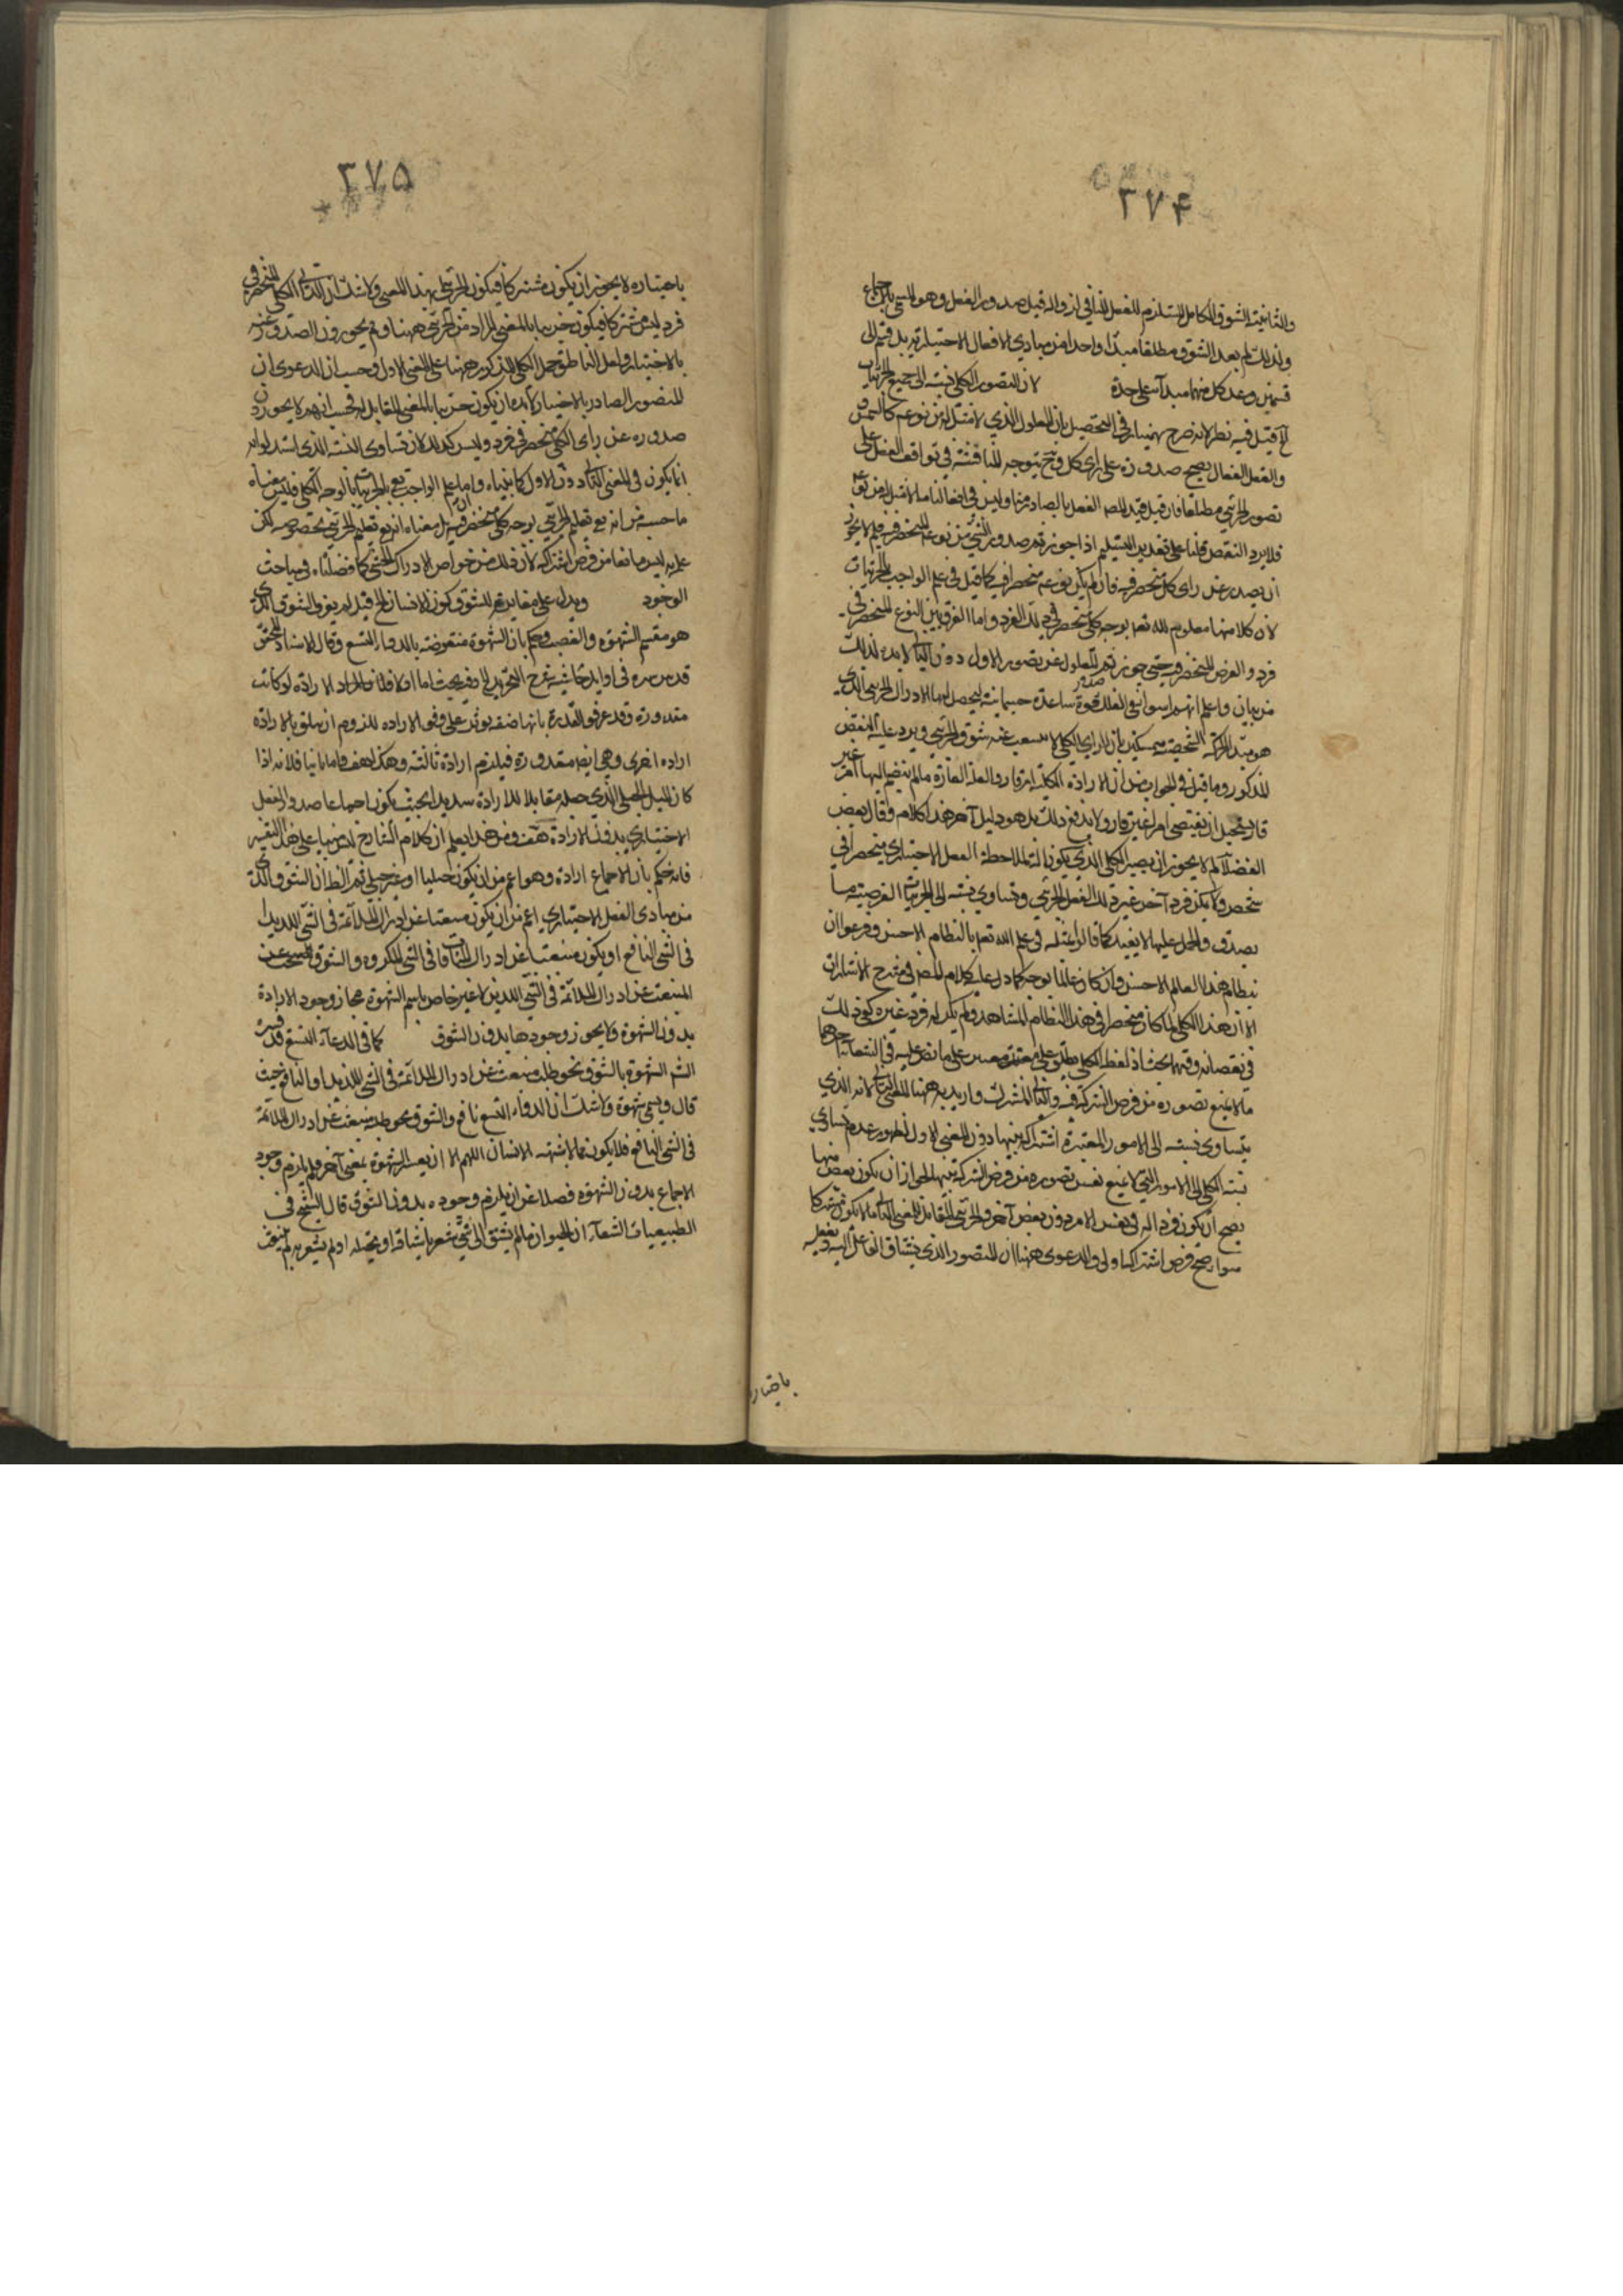 ٣٧۴
والثانية الشوق الكامل المستلزم للفعل الثاني ازواله قبل صدور الفعل وهو المسمى بالاجماع
ولذلك لم يعد الشوق مطلقا مبدأ واحدا من مبادي الافعال الاختيارية بل قسم الى
قسمين وعد كل منهما مبدأ على حدة لان التصور الكلي نسبته الى جميع الجزئيات
الخ قيل فيه نظر لانه صرح بهمنيار في التحصيل بان المعلول الذي لا مثل له من نوعه كالشمس
والعقل الفعال يصح صدوره على رأي كلي وح يتوجه المناقشة في توقف الفعل على
تصور الجزئي مطلقا فان قيل قيد المص الفعل بالصادر منا وليس في افعالنا ما لا مثل له من نوعه
فلا يرد النقض قلنا على تقدير التسليم اذا جوزتم صدور الشيء من نوعه المنحصر فيه فلم لا يجوز
ان يصدر عن رأي كلي منحصر فيه فان لم يكن نوعه منحصرا فيه كما قيل في علم الواجب بالجزئيات
لان كلا منها معلوم لله تعالى بوجه كلي منحصر في ذلك الفرد واما الفرق بين النوع المنحصر في
فرد والعرض المنحصر فيه حتى جوزتم المعلول عن تصور الاول دون الثاني لا بد لذلك
من بيان واعلم انهم اسوا في الفلك قوة ساعدة جسمانية ليحصل لها الادراك الجزئي الذي
هو مبدأ الحركة الشخصية متمسكين بان الرأي الكلي لا ينبعث عنه شوق جزئي ويرد عليه النقض
المذكور وما قيل في الجواب من ان الارادة الكلية امر قار والعلة القارة ما لم ينضم اليها امر غير
قار يستحيل ان تقتضي امرا غير قار ولا يندفع ذلك بل هو دليل آخر هذا كلامه وقال بعض
الفضلاء لم لا يجوز ان يصير الكلي الذي يكون آلة لملاحظة الفعل الاختياري منحصرا في
شخص ولا يمكن فرد آخر غير ذلك الفعل الجزئي وتساوي نسبته الى الجزئيات الفرضية ما
يصدق والحمل عليها لا يفيد كما قالوا مثله في علم الله تعالى بالنظام الاحسن وزعموا ان
نظام هذا العالم الاحسن وان كان عالما بوجه كما دل عليه كلام المص في شرح الاشارات
الا ان هذا الكلي لما كان منحصرا في هذا النظام المشاهد ولم يكن له فرد غيره كفى ذلك
في نقصانه وفيه بحث اذ لفظ الكلي يطلق على معنيين على ما نص عليه في الشفاء احدهما
ما لا يمنع تصوره من فرض الشركة فيه والثاني المشترك واريد به ههنا المعنى الثاني لانه الذي
يتساوى نسبته الى الامور المعتبرة اشتراكه بينها دون المعنى الاول لظهور عدم تساوي
نسبة الكلي الى الامور التي لا يمنع نفس تصوره من فرض الشركة بينها لجواز ان يكون بعض منها
يصح ان يكون فردا له في نفس الامر دون بعض آخر والجزئي المقابل للمعنى الثاني ما لا يكون مشتركا
سواء صح فرض اشتراكه او لا والدعوى ههنا ان التصور الذي يشتاق الفاعل اليه ويفعله
باختياره
٣٧۵
باختياره لا يجوز ان يكون مشتركا فيكون الجزئي بهذا المعنى ولا شك ان الكلي المنحصر في
فرد ليس مشتركا فيكون جزئيا بالمعنى المراد من الجزئي ههنا ولم يجوزون الصدور عنه
بالاختيار ولعل الناظر حمل الكلي المذكور ههنا على المعنى الاول وحسب ان الدعوى ان
المتصور الصادر بالاختيار لا بد ان يكون جزئيا بالمعنى المقابل له فحسب انهم لا يجوزون
صدوره عن رأي الكلي المنحصر في فرد وليس كذلك لان تساوي النسبة الذي استدلوا به
انما يكون في المعنى الثاني دون الاول كما بيناه واما علم الواجب تعالى بالجزئيات بالوجه الكلي فليس معناه
ما حسبه من انه تعالى يعلم الجزئي بوجه كلي منحصر فيه بل معناه انه تعالى يعلم الجزئي بخصوصه لكن
علمه ليس مانعا من فرض اشتراكه لان ذلك من خواص الادراك الحسي كما فصلناه في مباحث
الوجود ويدل على مغايرته للشوق كون الانسان الخ قيل لم يعرف الشوق الذي
هو مقسم الشهوة والغضب وحكم بان الشهوة منقوضة بالدواء البشع وقال الاستاد المحقق
قدس سره في اوايل حاشية شرح التجريد وفيه بحث اما اولا فلان المراد الارادة لو كانت
مقدورة وقد عرف القدرة بانها صفة يؤثر على وفق الارادة لزم ان يتعلق بالارادة
ارادة اخرى وهي ايضا مقدورة فيلزم ارادة ثالثة وهكذا هف واما ثانيا فلانه اذا
كان الميل الجبلي الذي جعله مقابلا للارادة شديدا بحيث يكون اجماعا صدر الفعل
الاختياري بدون الارادة هف ومن هذا يعلم ان كلام الشارح ليس مبنيا على هذا التفسير
فانه حكم بان الاجماع ارادة وهو اعم من ان يكون جبليا او غير جبلي ثم الظ ان الشوق الذي
من مبادي الفعل الاختياري اعم من ان يكون منبعثا عن ادراك الملائمة في الشيء اللذيذ او
في الشيء النافع او يكون منبعثا عن ادراك المنافاة في الشيء المكروه والشوق
المنبعث عن ادراك الملائمة في الشيء اللذيذ لا غير خاص باسم الشهوة مجاز وجود الارادة
بدون الشهوة ولا يجوز وجودها بدون الشوق كما في الدواء البشع قد فسر
الش الشهوة بالشوق نحو طلب منبعث عن ادراك الملائمة في الشيء اللذيذ او النافع حيث
قال ويسمى شهوة ولا شك ان الدواء البشع نافع والشوق نحو طلبه منبعث عن ادراك الملائمة
في الشيء النافع فلا يكون مما لا يشتهيه الانسان اللهم الا ان يفسر الشهوة بمعنى آخر ولم يلزم وجود
الاجماع بدون الشهوة فضلا عن ان يلزم وجوده بدون الشوق قال الشيخ في
الطبيعيات الشفاء ان الحيوان ما لم يشتق الى شيء شعر باشتياقه او تخيله او لم يشعر به لم